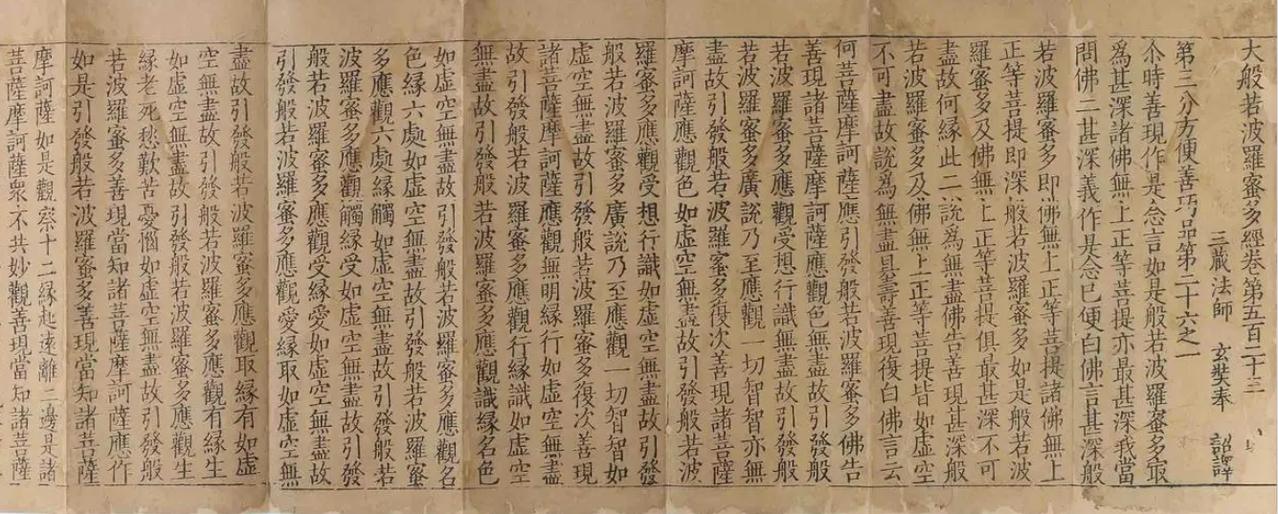 大般若波羅蜜多經卷第五百二十三
三藏法師 玄奘奉 詔譯
第三分方便善巧品第二十六之一
尒時善現作是念言如是般若波羅蜜多最
為甚深諸佛無上正等菩提亦最甚深我當
問佛二甚深義作是念已便白佛言甚深般
若波羅蜜多即佛無上正等菩提諸佛無上
正等菩提即深般若波羅蜜多如是般若波
羅蜜多及佛無上正等菩提俱最甚深不可
盡故何緣此二說為無盡佛告善現甚深般
若波羅蜜多及佛無上正等菩提皆如虛空
不可盡故說為無盡具壽善現復白佛言云
何菩薩摩訶薩應引發般若波羅蜜多佛告
善現諸菩薩摩訶薩應觀色無盡故引發般
若波羅蜜多應觀受想行識無盡故引發般
若波羅蜜多廣說乃至應觀一切智智亦無
盡故引發般若波羅蜜多復次善現諸菩薩
摩訶薩應觀色如虛空無盡故引發般若波
羅蜜多應觀受想行識如虛空無盡故引發
般若波羅蜜多廣說乃至應觀一切智智如
虛空無盡故引發般若波羅蜜多復次善現
諸菩薩摩訶薩應觀無明緣行如虛空無盡
故引發般若波羅蜜多應觀行緣識如虛空
無盡故引發般若波羅蜜多應觀識緣名色
如虛空無盡故引發般若波羅蜜多應觀名
色緣六處如虛空無盡故引發般若波羅蜜
多應觀六處緣觸如虛空無盡故引發般若
波羅蜜多應觀觸緣受如虛空無盡故引發
般若波羅蜜多應觀受緣愛如虛空無盡故
引發般若波羅蜜多應觀愛緣取如虛空無
盡故引發般若波羅蜜多應觀取緣有如虛
空無盡故引發般若波羅蜜多應觀有緣生
如虛空無盡故引發般若波羅蜜多應觀生
緣老死愁歎苦憂惱如虛空無盡故引發般
若波羅蜜多善現當知諸菩薩摩訶薩應作
如是引發般若波羅蜜多善現當知諸菩薩
摩訶薩如是觀察十二緣起遠離二邊是諸
菩薩摩訶薩眾不共妙觀善現當知諸菩薩